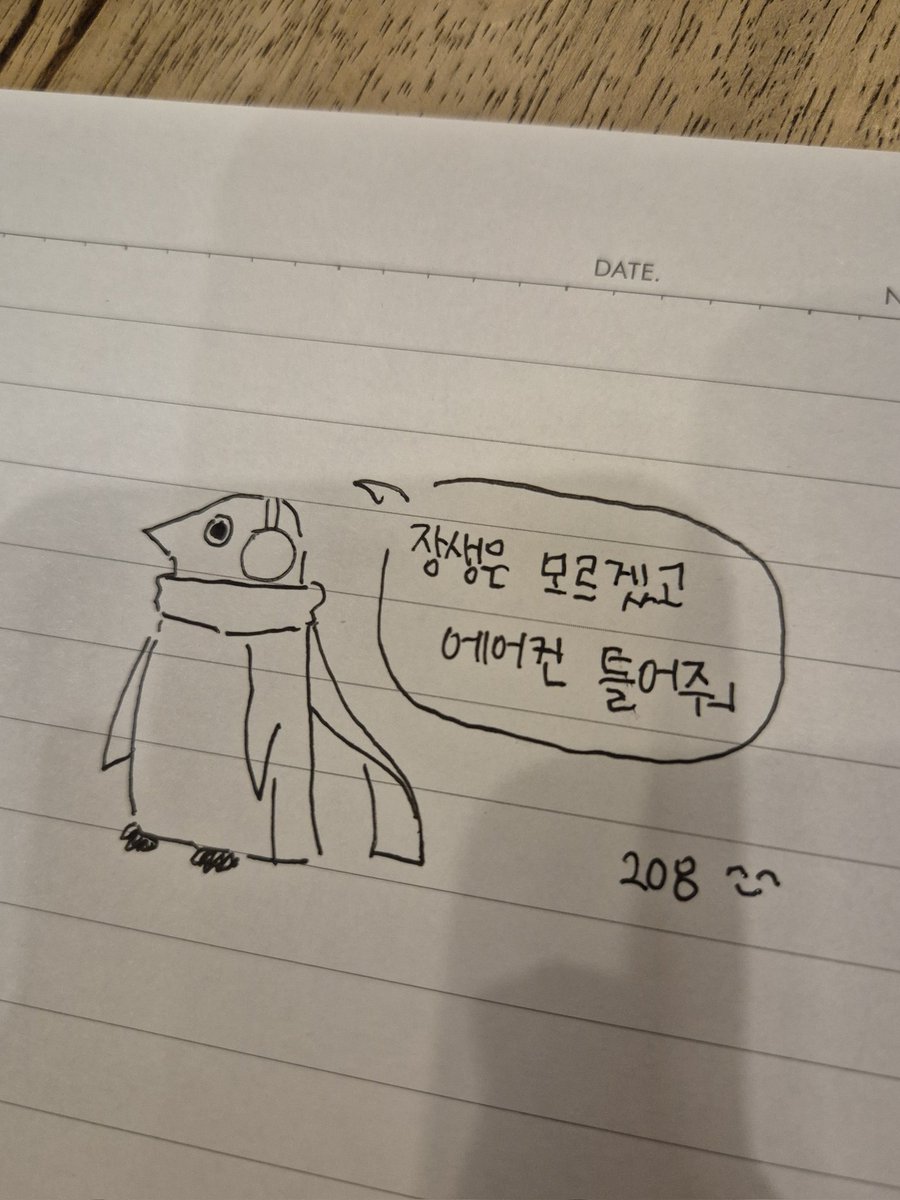 DATE.
N
장생은 모르겠고
에어컨 틀어줘
208 ^-^